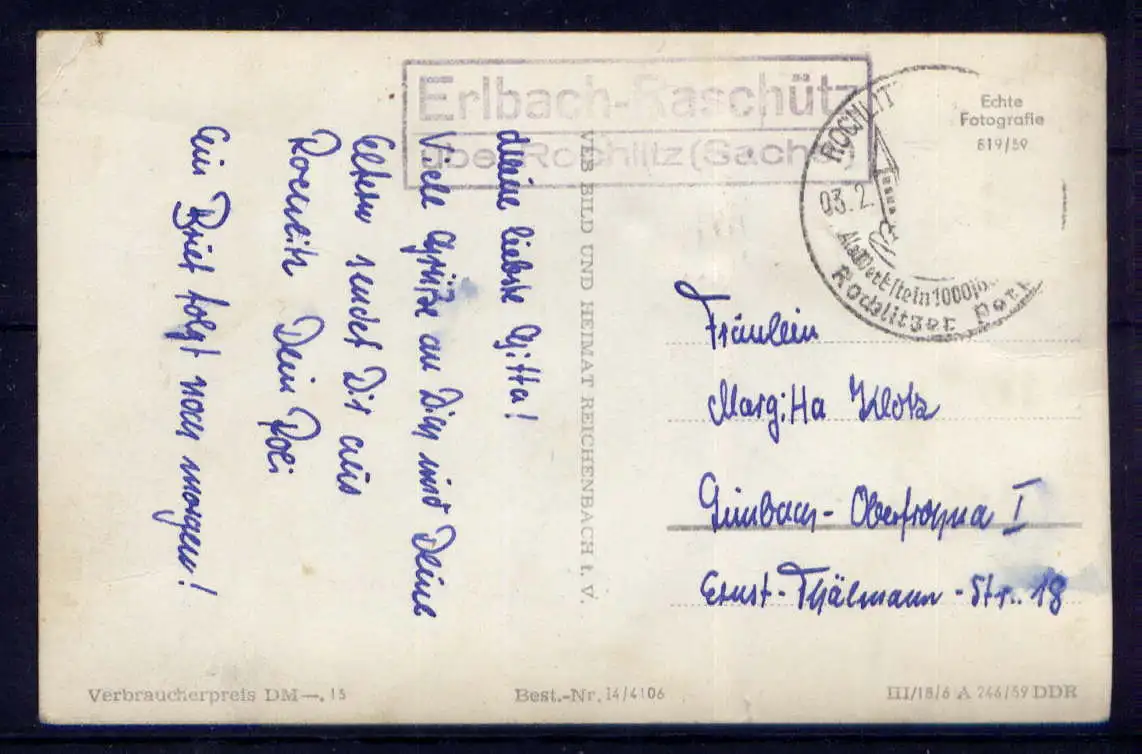 Erlbach-Raschütz
über Rochlitz (Sachs.)
ROCHLIT
03.2
Als Werkstein 1000jä
Rochlitzer Por
Echte
Fotografie
819/59
Meine liebste Gitta!
Viele Grüße an Dich und Deine
Eltern sendet Dir aus
Rochlitz Dein
Ein Brief folgt noch morgen!
VEB BILD UND HEIMAT REICHENBACH i. V.
Fräulein
Margitta Klotz
Limbach-Oberfrohna I
Ernst-Thälmann-Str. 18
Verbraucherpreis DM —.15
Best.-Nr. 14/4106
III/18/6 A 246/59 DDR